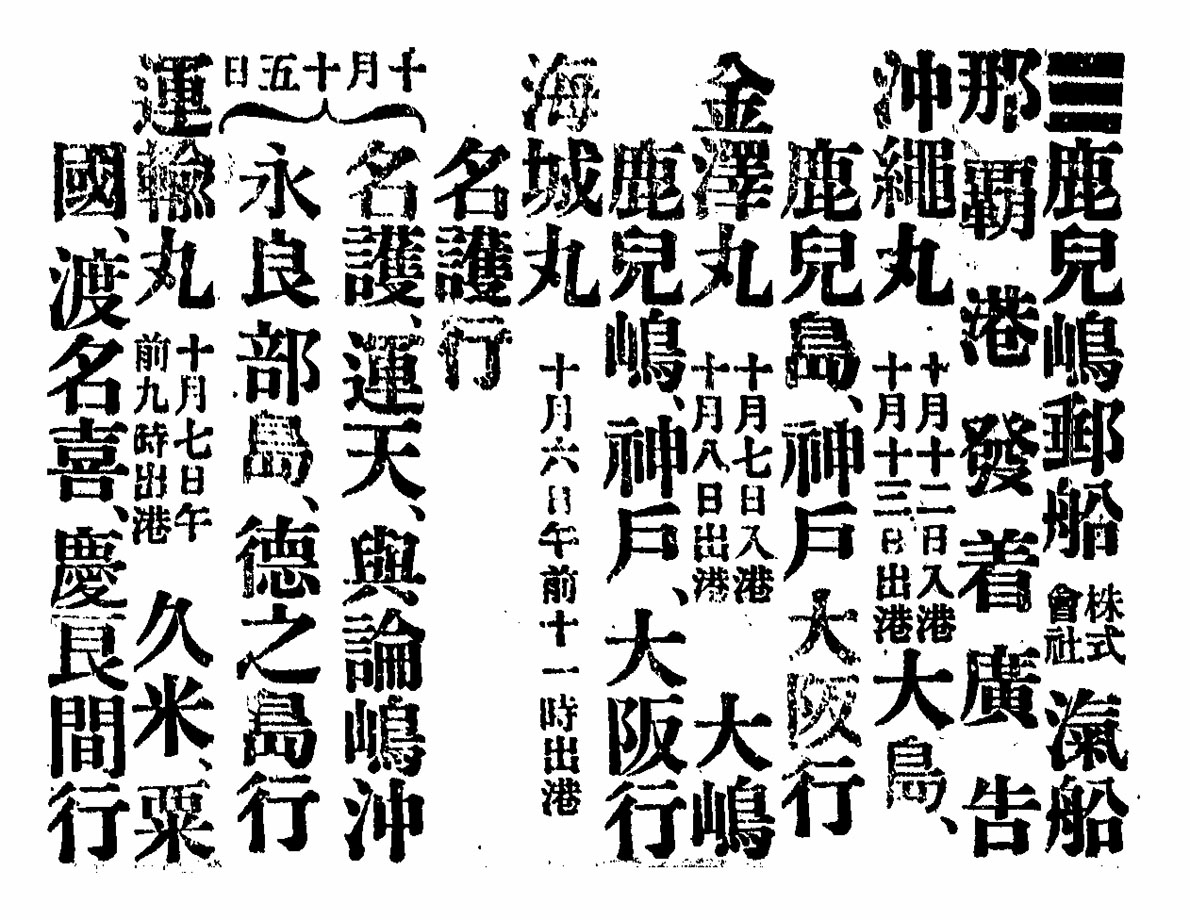 ☰鹿兒嶋郵船株式會社滊船
那覇港發着廣告
沖繩丸
十月十二日入港
十月十三日出港
大島、
鹿兒島、神戶大阪行
金澤丸
十月七日入港
十月八日出港
大嶋
鹿兒嶋、神戶、大阪行
海城丸 十月六日午前十一時出港
名護行
十月十五日
名護、運天、與論嶋沖
永良部島、德之島行
運輸丸
十月七日午
前九時出港
久米、粟
國、渡名喜、慶良間行